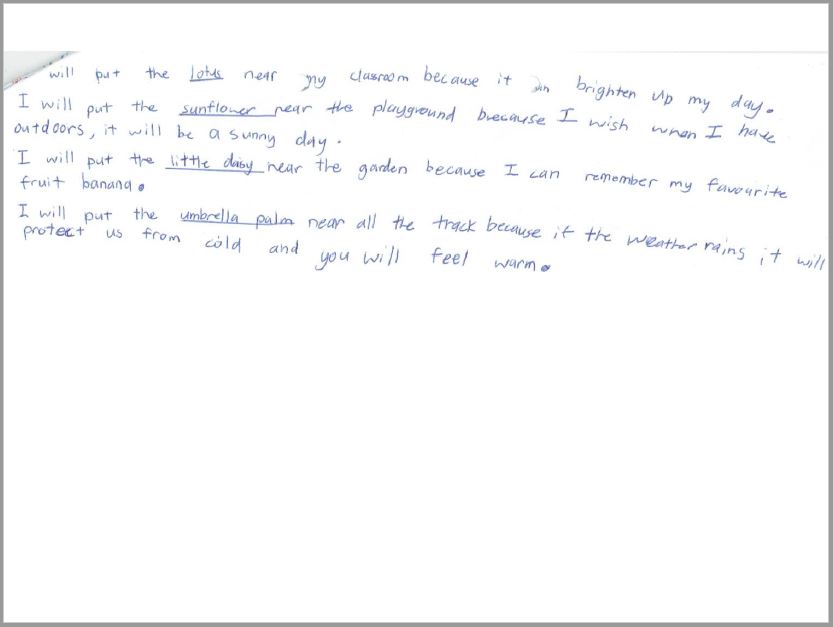 will put the lotus near my clasroom because it brighten up my day.
I will put the sunflower near the playground because I wish when I have
outdoors, it will be a sunny day.
I will put the little daisy near the garden because I can remember my favourite
fruit banana.
I will put the umbrella palm near all the track because if the weather rains it will
protect us from cold and you will feel warm.